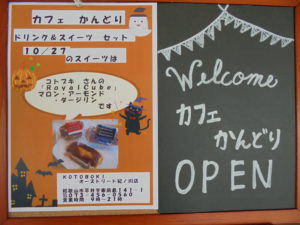 カフェ かんどり
ドリンク&スイーツ セット
10/27
のスイーツは
コトブキ さんの
「Royal Cube」
マロン・アーモンド
・ダージリン
です
KOTOBUKI
オーストリート紀ノ川店
営業時間 9時-21時
Welcome
カフェ
かんどり
OPEN